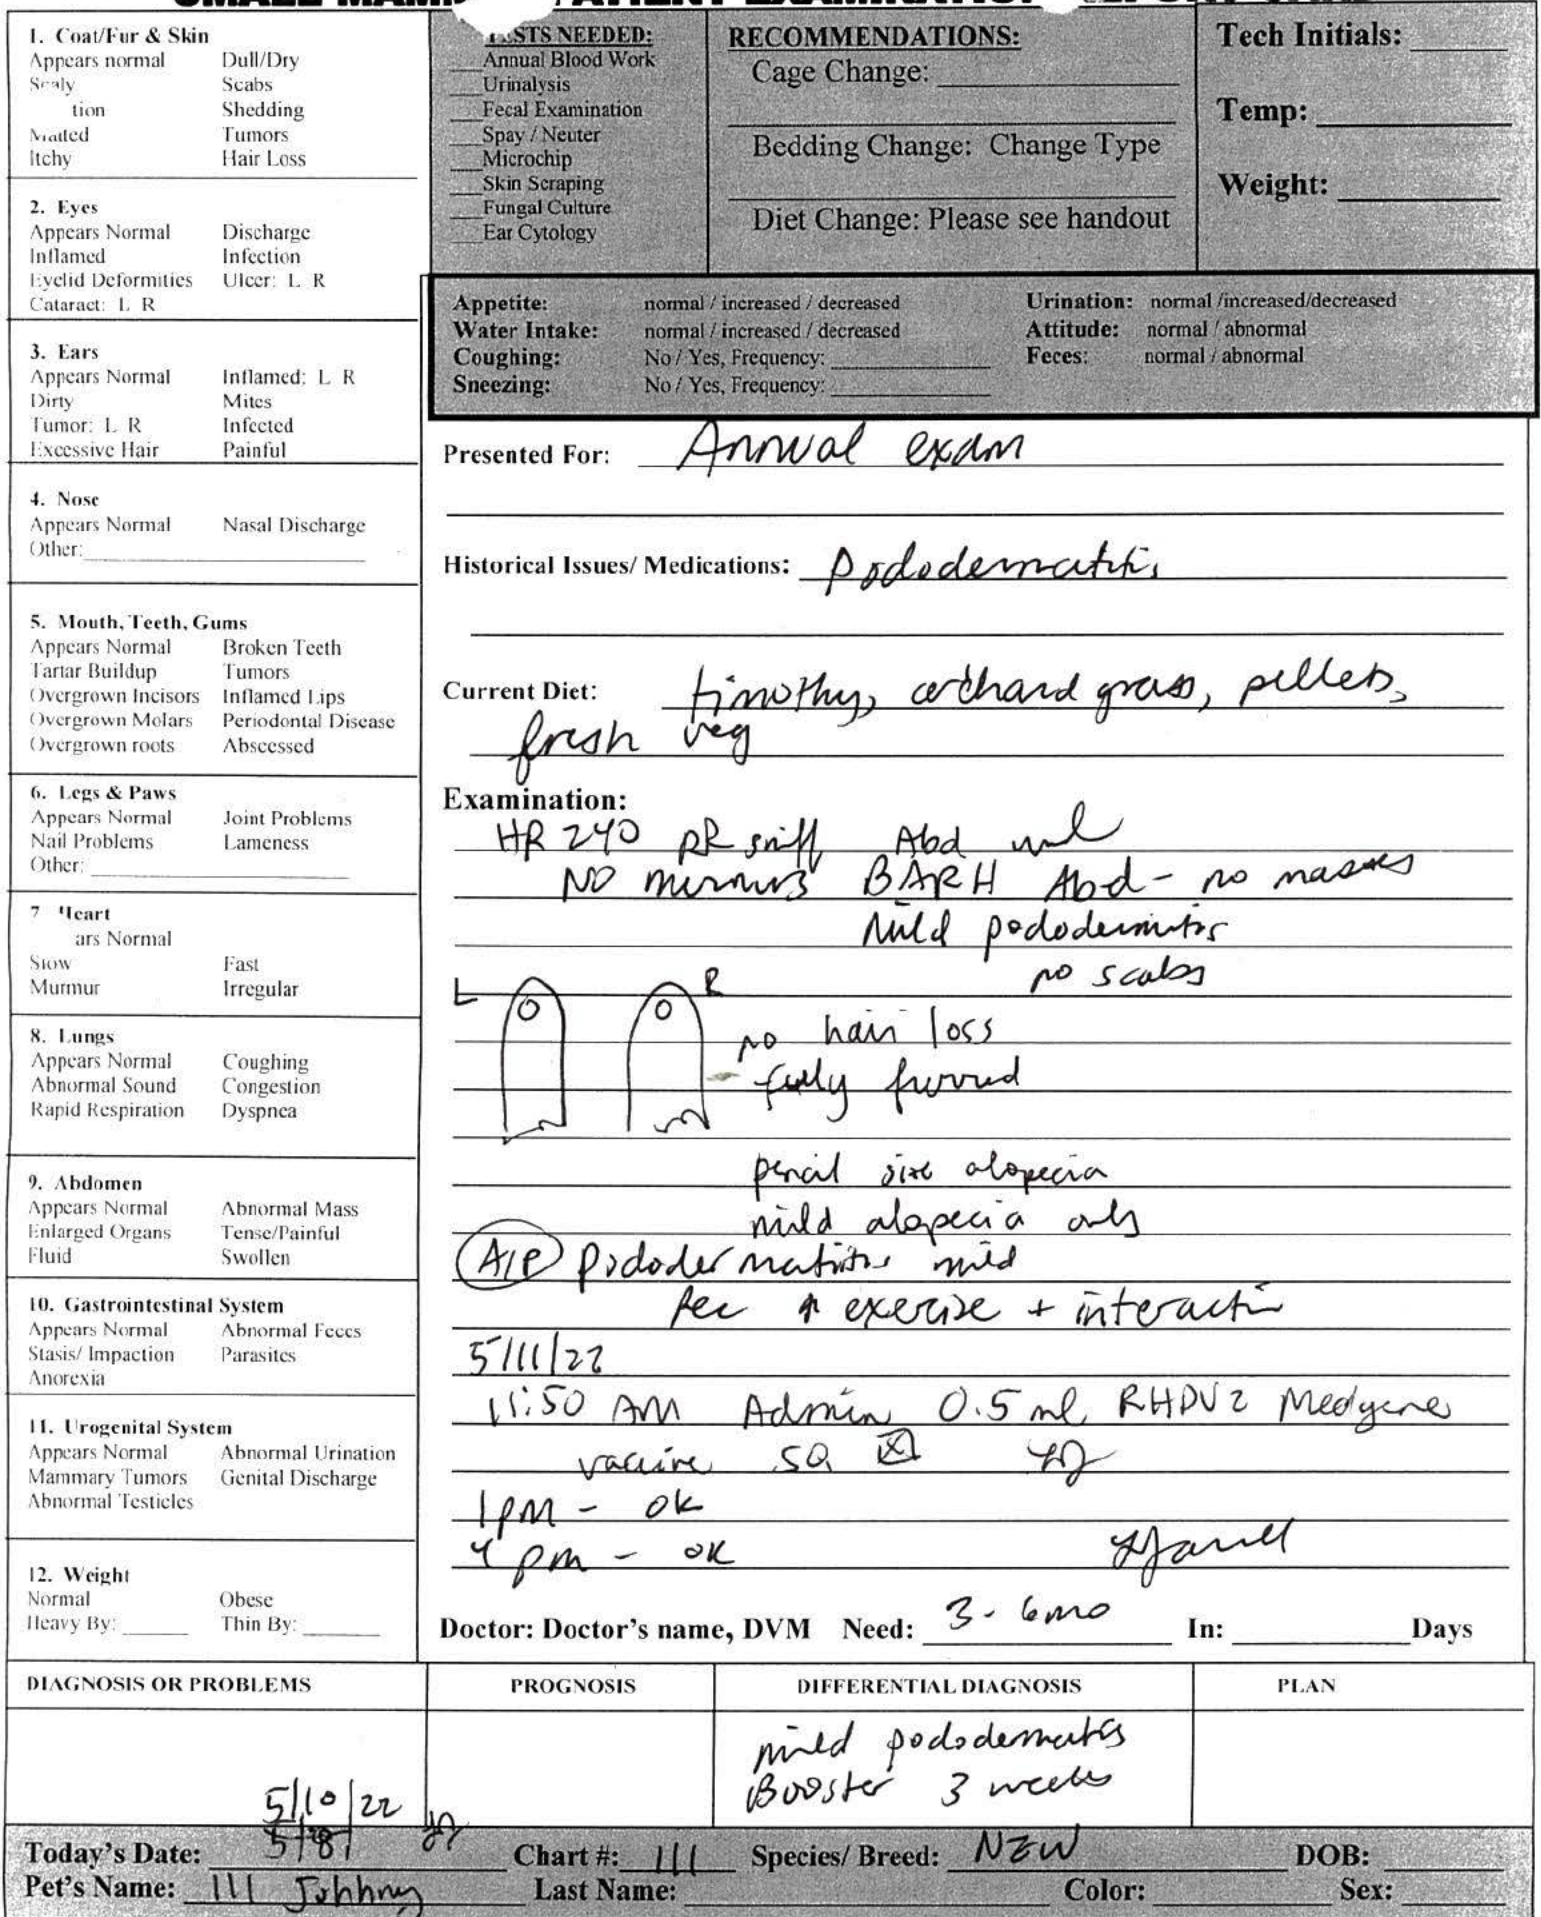 SMALL MAM
ATIENT EXAMINATIO
1. Coat/Fur & Skin
Appears normal Dull/Dry
Scaly Scabs
tion Shedding
Matted Tumors
Itchy Hair Loss
2. Eyes
Appears Normal Discharge
Inflamed Infection
Eyelid Deformities Ulcer: L R
Cataract: L R
3. Ears
Appears Normal Inflamed: L R
Dirty Mites
Tumor: L R Infected
Excessive Hair Painful
4. Nose
Appears Normal Nasal Discharge
Other:
5. Mouth, Teeth, Gums
Appears Normal Broken Teeth
Tartar Buildup Tumors
Overgrown Incisors Inflamed Lips
Overgrown Molars Periodontal Disease
Overgrown roots Abscessed
6. Legs & Paws
Appears Normal Joint Problems
Nail Problems Lameness
Other:
7 Heart
ars Normal
Slow Fast
Murmur Irregular
8. Lungs
Appears Normal Coughing
Abnormal Sound Congestion
Rapid Respiration Dyspnea
9. Abdomen
Appears Normal Abnormal Mass
Enlarged Organs Tense/Painful
Fluid Swollen
10. Gastrointestinal System
Appears Normal Abnormal Feces
Stasis/ Impaction Parasites
Anorexia
11. Urogenital System
Appears Normal Abnormal Urination
Mammary Tumors Genital Discharge
Abnormal Testicles
12. Weight
Normal Obese
Heavy By: Thin By:
TESTS NEEDED:
Annual Blood Work
Urinalysis
Fecal Examination
Spay / Neuter
Microchip
Skin Scraping
Fungal Culture
Ear Cytology
RECOMMENDATIONS:
Cage Change:
Bedding Change: Change Type
Diet Change: Please see handout
Tech Initials:
Temp:
Weight:
Appetite: normal / increased / decreased Urination: normal /increased/decreased
Water Intake: normal / increased / decreased Attitude: normal / abnormal
Coughing: No / Yes, Frequency: Feces: normal / abnormal
Sneezing: No / Yes, Frequency:
Presented For: Annual exam
Historical Issues/ Medications: Pododermatitis
Current Diet: timothy, orchard grass, pellets,
fresh veg
Examination:
HR 240 RR sniff Abd wnl
NO murmurs BARH Abd - no masses
Mild pododermatitis
no scabs
L R
no hair loss
- fully furred
pencil size alopecia
mild alopecia only
A/P Pododermatitis mild
Rec ↑ exercise + interaction
5/11/22
11:50 AM Admin 0.5 ml RHDV2 Medgene
vaccine SQ
1pm - ok
4pm - ok
Doctor: Doctor's name, DVM Need: 3-6mo In: Days
DIAGNOSIS OR PROBLEMS PROGNOSIS DIFFERENTIAL DIAGNOSIS PLAN
mild pododermatitis
Booster 3 weeks
5/10/22
Today's Date: 5/8/ Chart #: 111 Species/ Breed: NZW DOB:
Pet's Name: 111 Johhny Last Name: Color: Sex: